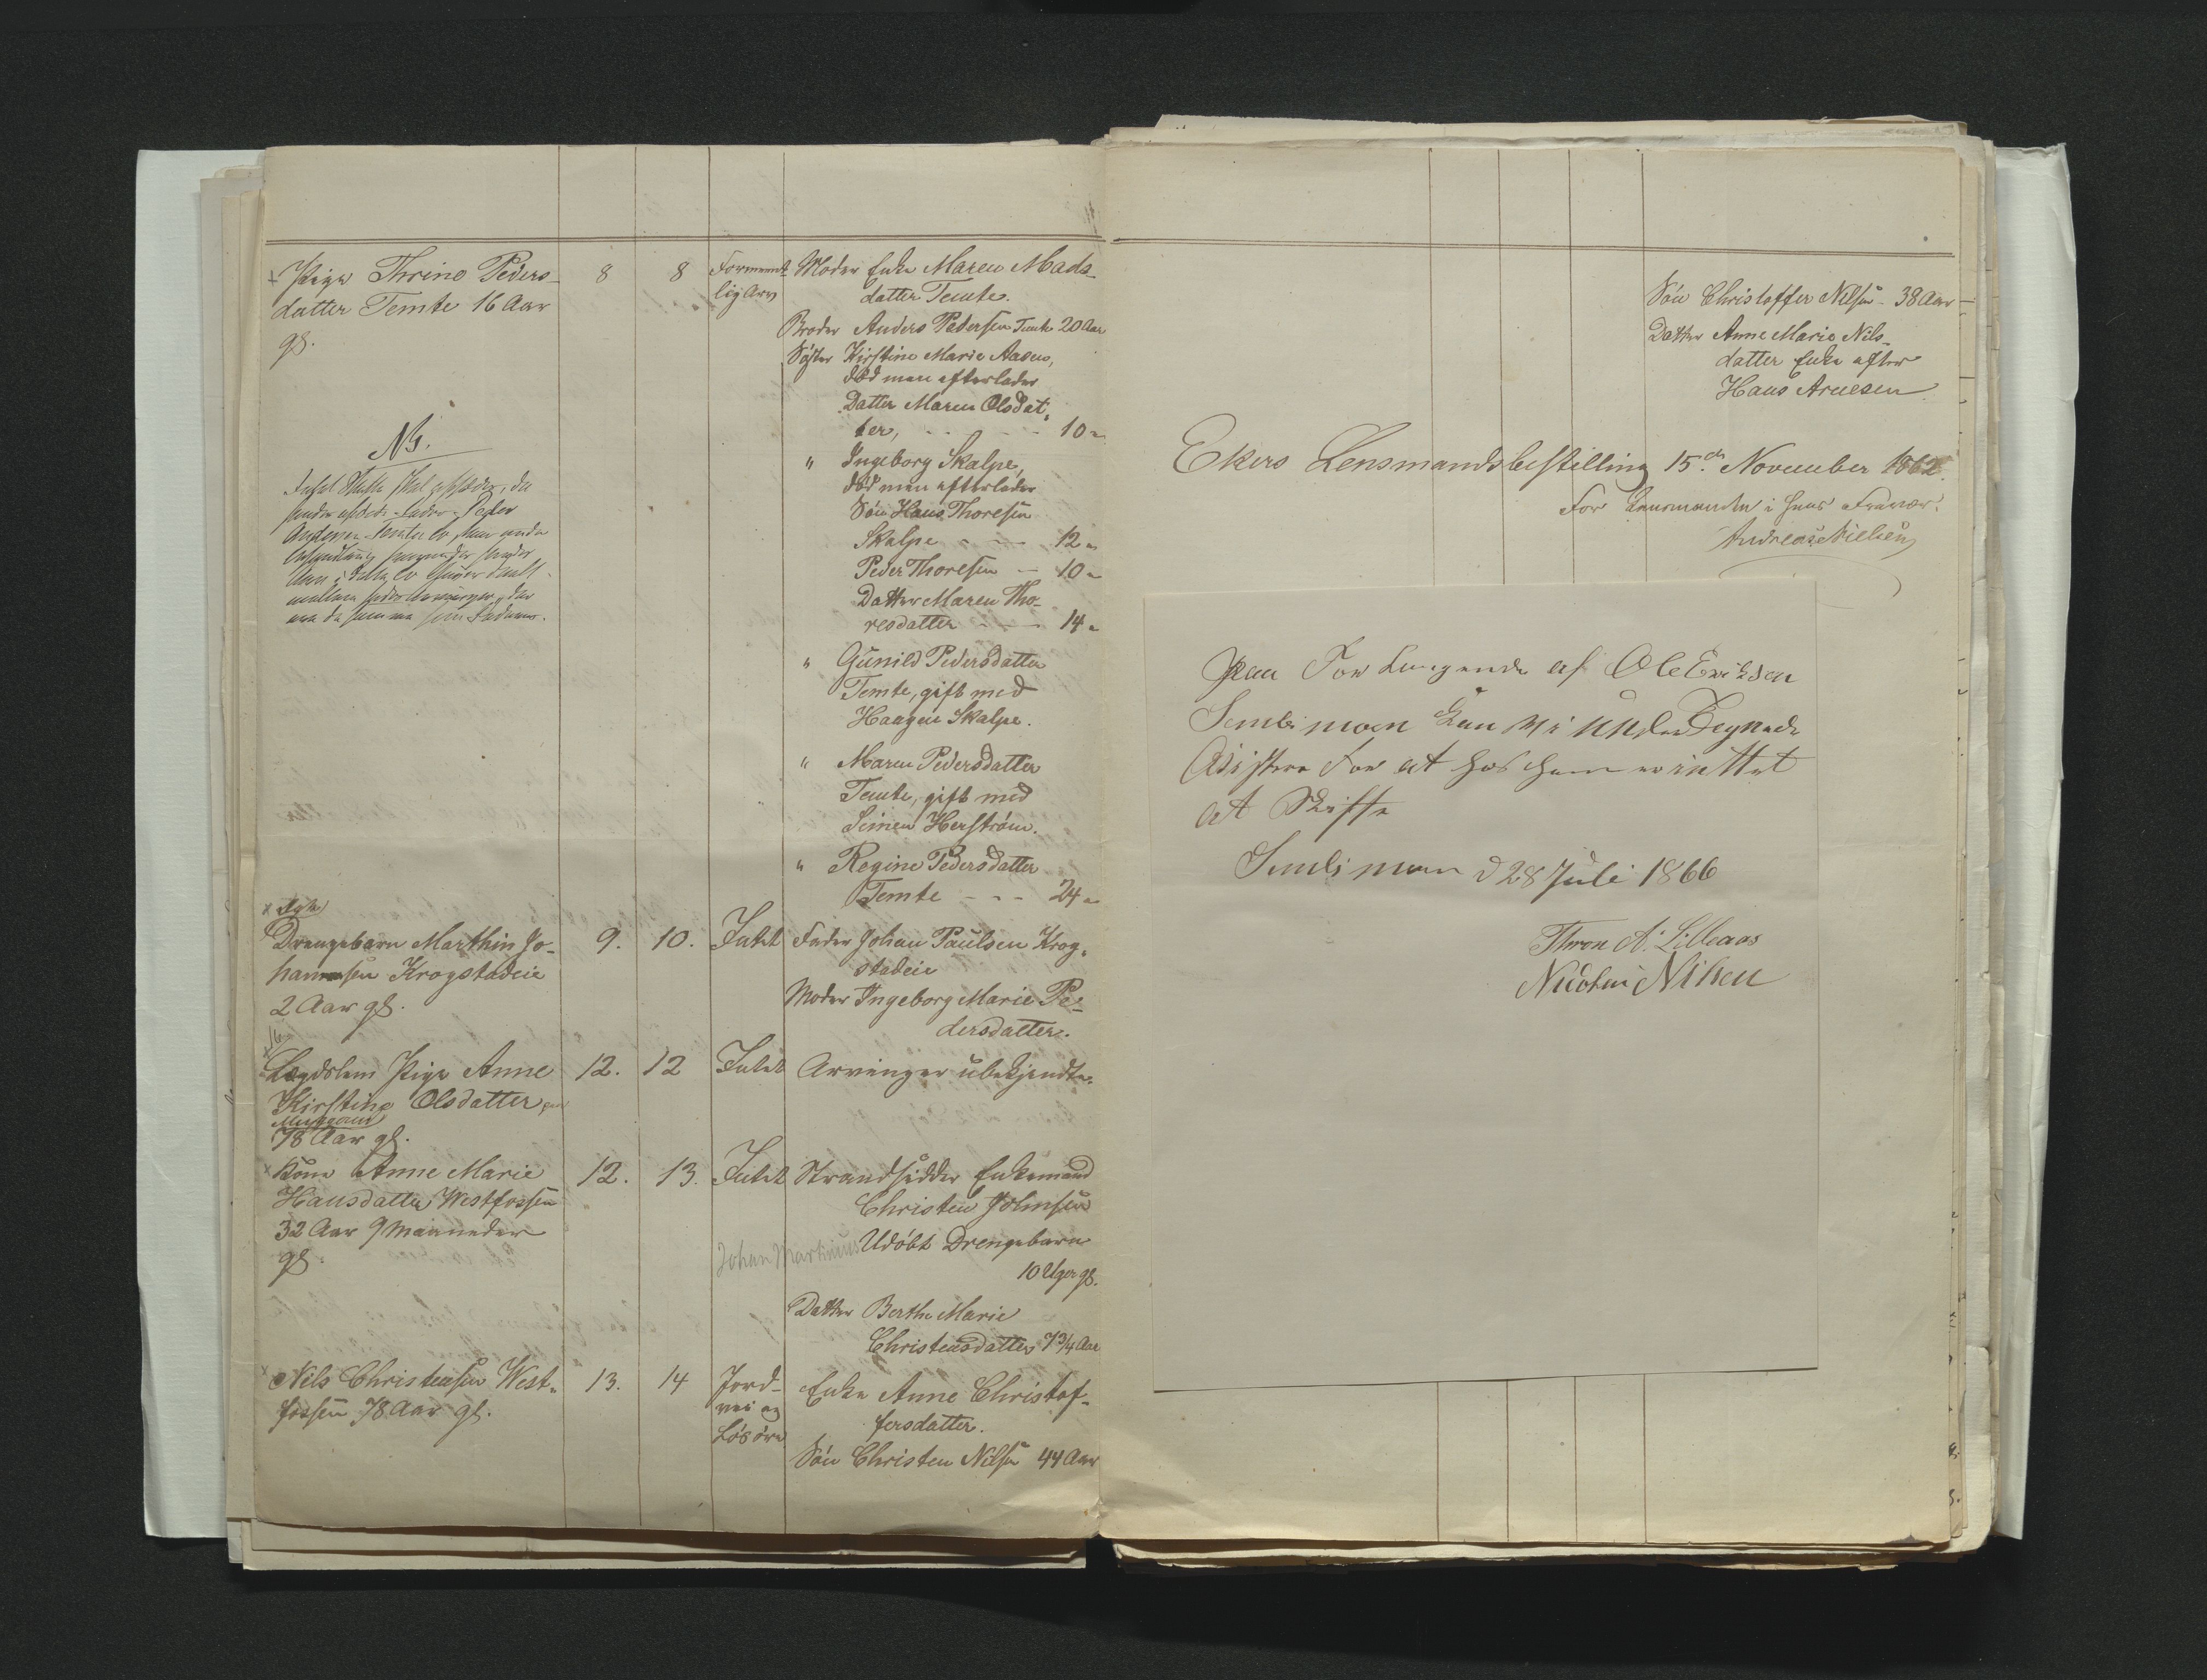 Pige Thrine Peders-
datter Temte 16 Aar
gl.
8
8
Forment-
lig Arv
Moder Enke Maren Mads-
datter Temte.
Broder Anders Pedersen Temte 20 Aar
Søster Kirstine Marie Aasen,
død men efterlader
Datter Maren Olsdat-
ter, - - - 10 "
" Ingeborg Skalpe,
død men efterlader
Søn Hans Thoresen
Skalpe - - - 12 "
Peder Thoresen - 10 "
Datter Maren Tho-
resdatter - - 14 "
" Gunild Pedersdatter
Temte, gift med
Haagen Skalpe.
" Maren Pedersdatter
Temte, gift med
Simen Herstrøm.
" Regine Pedersdatter
Temte - - - 24 "
NB.
Intet Skifte skal
Fader Peder
Andersen Temte er
under
Behandling
x
Drengebarn Marthin Jo-
hannesen Krogstadeie
2 Aar gl.
9.
10.
Intet
Fader Johan Paulsen Krog-
stadeie
Moder Ingeborg Marie Pe-
dersdatter.
Lægdslem Pige Anne
Kirstine Olsdatter
78 Aar gl.
12.
12
Intet
Arvinger ubekjendte.
x Kone Anne Marie
Hansdatter Westfossen
32 Aar 9 Maaneder
gl.
12.
13.
Intet
Strandsidder Enkemand
Christen Johnsen
Johan Martinius Udøbt Drengebarn
10 Uger gl.
Datter Berthe Marie
Christensdatter 7 3/4 Aar
x Nils Christensen West-
fossen 78 Aar gl.
13.
14
Jord-
vei og
Løsøre
Enke Anne Christof-
fersdatter.
Søn Christen Nilsen 44 Aar
Søn Christoffer Nilsen - 38 Aar
Datter Anne Marie Nils-
datter Enke efter
Hans Arnesen
Ekers Lensmandsbestilling 15de November 1862.
For Lensmanden i hans Fravær.
Andreas Nielsen
Paa Forlangende af Ole Eriksen
Semb moen kan vi underTegnede
Atistere For at hos ham er inttet
at Skifte
Semb moen d 28 Juli 1866
Thron A. Lilleaas
Nicolai Nilsen